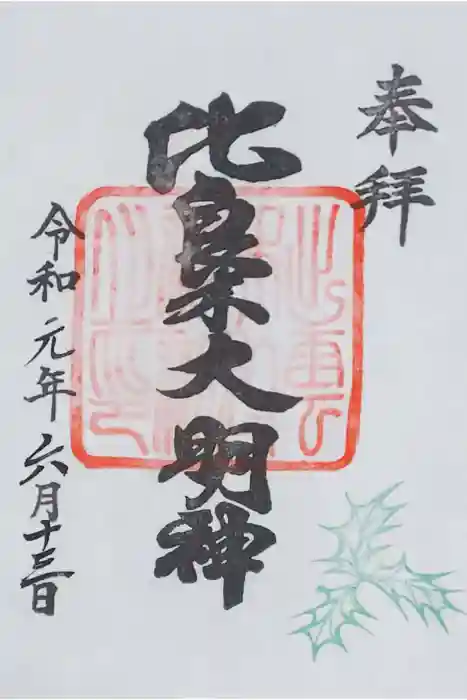 奉拝
比良木大明神
令和元年六月十三日